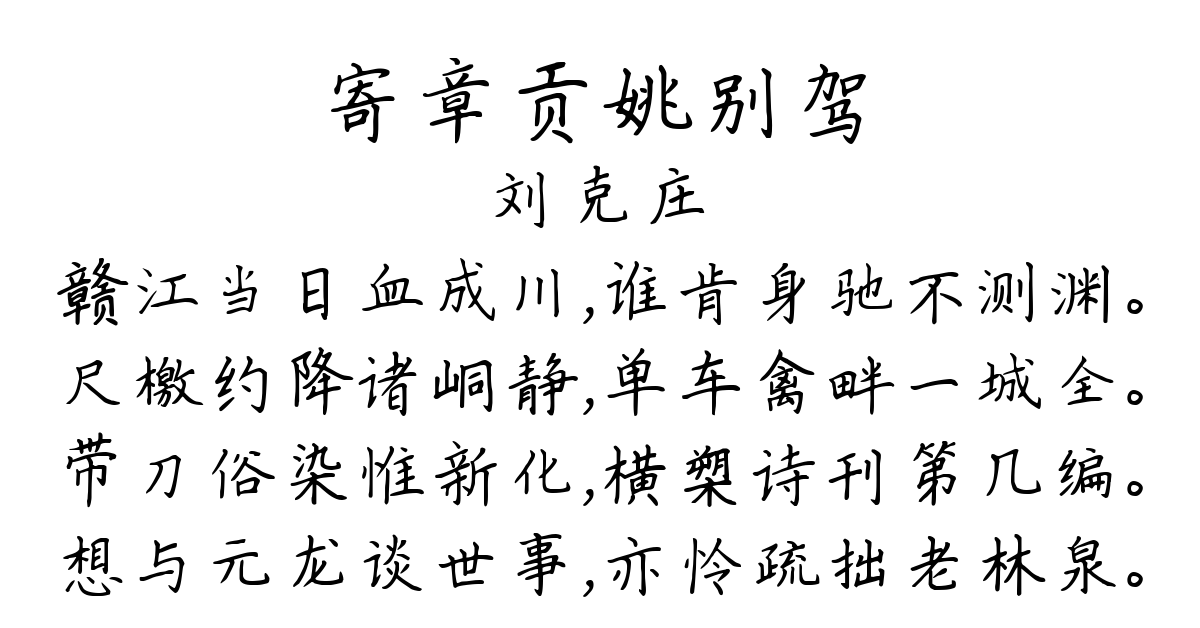 寄章贡姚别驾
刘克庄
赣江当日血成川,谁肯身驰不测渊。
尺檄约降诸峒静,单车禽畔一城全。
带刀俗染惟新化,横槊诗刊第几编。
想与元龙谈世事,亦怜疏拙老林泉。